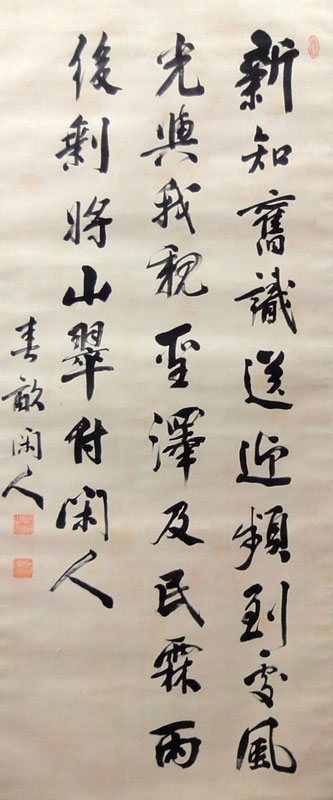 新知舊識送迎頻到處風
光與我親聖澤及民霖雨
後剰將山翠付閑人
春畝閑人